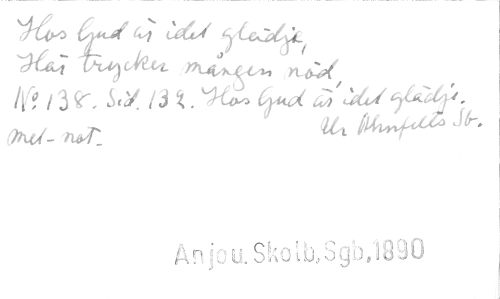 Hos Gud är idel glädje,
Här trycker mången nöd,
No. 138. Sid. 132. Hos Gud är idel glädje.
Ur Ahnfelts Sb.
Mel-not-
Anjou.Skolb,Sgb,1890